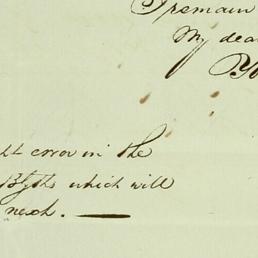 I remain
My dea
Yo
error in the
Blyths which will
next.